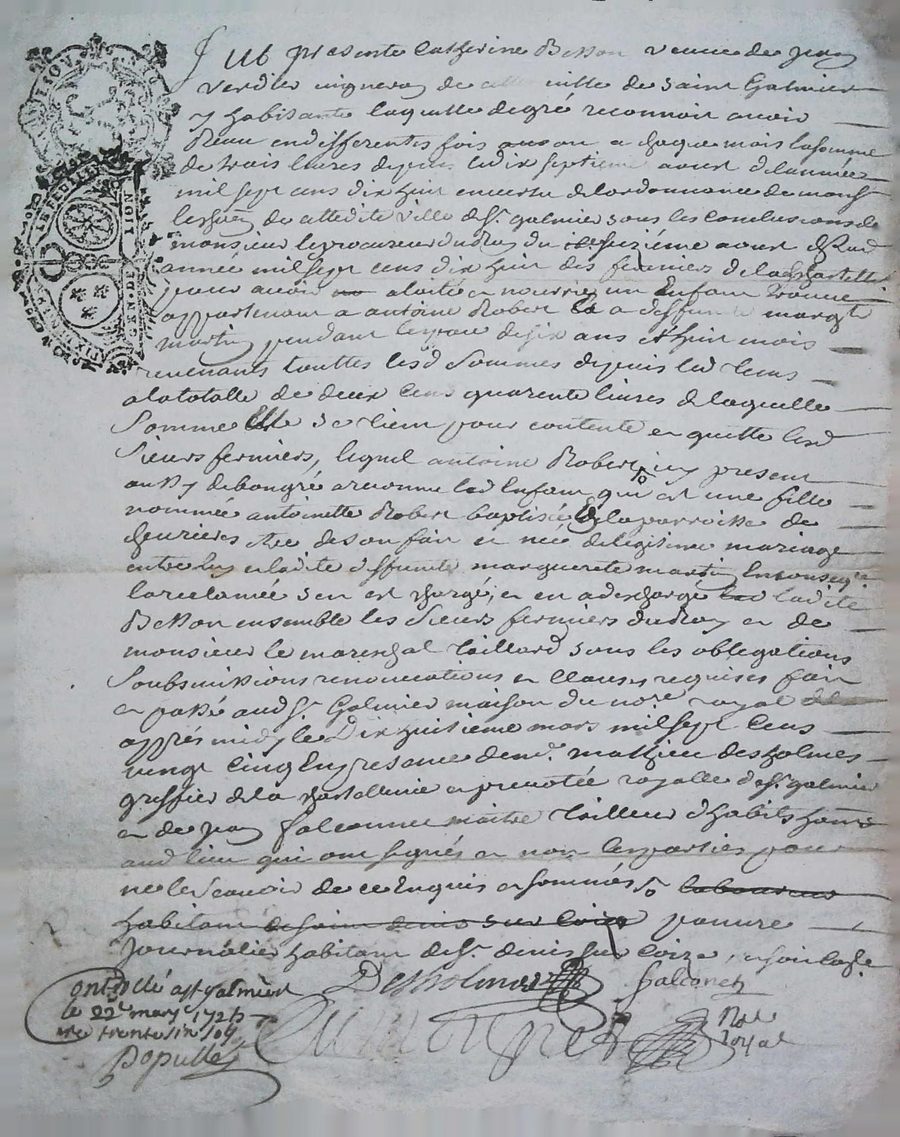 fut presente Catherine Besson veuve de jean
verdier vigneron de ville de saint Galmier
y habitante laquelle de gré reconnoit avoir
Receu en differentes fois a chaque mois la somme
de trois livres depuis le dix septieme aoust de lannée
mil sept cens dix huit en vertu de lordonnance de mons.
de ladite ville de st. galmier sous les conclusions de
monsieur le procureur du Roy du seizième aoust de lad
année mil sept cens dix huit des fermiers de la Chastell
pour avoir alaitté et nourry un Enfant trouvé
appartenant a antoine Robert a deffunte margte
martin pendant lespace de six ans et huit mois
revenants touttes lesd sommes depuis led tems
a la totalle de deux cens quarente livres de laquelle
Somme Elle se tient pour contente et quitte lesd
Sieurs fermiers, lequel antoine Robert icy present
de bon gré a reconnu led Enfant qui est une fille
nommée antoinette Robert baptisée a la parroisse de
chevrieres etre de son fait et née de légitime mariage
entre luy et ladite deffunte marguerite martin En conseqce
la reclamée sen est chargé, et en a deschargé ladite
Besson ensemble les Sieurs fermiers du Roy et de
monsieur le mareschal Taillard sous les obligations
Soubsmissions renonciations et clauses requises fait
et passé aud St. Galmier maison du nore. royal
apprés midy le Dix huitieme mars mil sept cens
vingt cinq En presence de me. mathieu desholmes
greffier de la chastellenie et prevotée royalle de st. galmier
et de jean falconnet maitre tailleur d'habits
aud lieu qui ont signés et non les parties pour
ne le Scavoir de ce Enquis et sommés laboureur
habitant de saint denis sur Coize pauvre
Journalier habitant de St. denis sur Coize,
Controllé a st galmier
le 22e mars 1725
Desholmes
falconet
Dopulle
Nore
royal